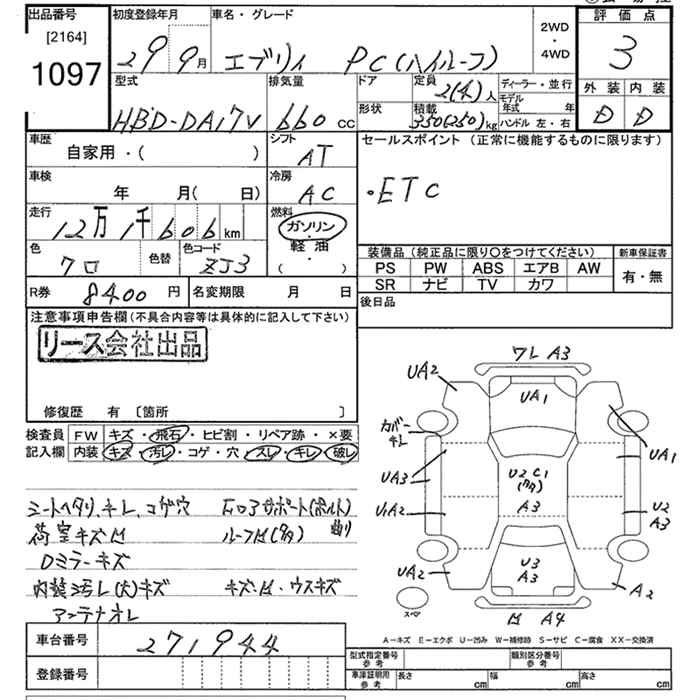 出品番号
[2164]
1097
初度登録年月
29 9月
車名・グレード
エブリィ PC(ハイルーフ)
2WD
・
4WD
評価点
3
外装 内装
D D
型式
HBD-DA17V
排気量
660 cc
ドア
形状
定員
2(4)人
積載
350(250)kg
ディーラー・並行
モデル年式 年
ハンドル 左・右
車歴
自家用・( )
シフト
AT
車検
年 月( 日)
冷房
AC
走行
12万1千606km
燃料
ガソリン
・
軽油
( )
色
クロ
色替
色コード
ZJ3
R券 8400円
名変期限 月 日
セールスポイント (正常に機能するものに限ります)
・ETC
装備品(純正品に限り〇をつけてください)
PS PW ABS エアB AW
SR ナビ TV カワ
新車保証書
有・無
後日品
注意事項申告欄(不具合内容等は具体的に記入して下さい)
リース会社出品
修復歴 有 〔箇所 〕
検査員
記入欄
FW キズ・飛石・ヒビ割・リペア跡・×要
内装 キズ・汚レ・コゲ・穴・スレ・キレ・破レ
シートヘタリ、キレ、コゲ穴
荷室キズ凹
Dミラーキズ
内装汚レ(大)キズ
アンテナオレ
コアサポート(ボルト)
ルーフ凹
キズ・凹・ウスキズ
ワレ A3
UA2
UA1
カバーキレ
UA3
UA1
U2C1
A3
U1A2
U2
A3
UA2
U3
A3
A2
スペア
凹 A4
A−キズ E−エクボ U−凹み W−補修跡 S−サビ C−腐食 XX−交換済
車台番号
271944
登録番号
型式指定番号
参考
類別区分番号
参考
車庫証明用
参考
長さ cm
幅 cm
高さ cm